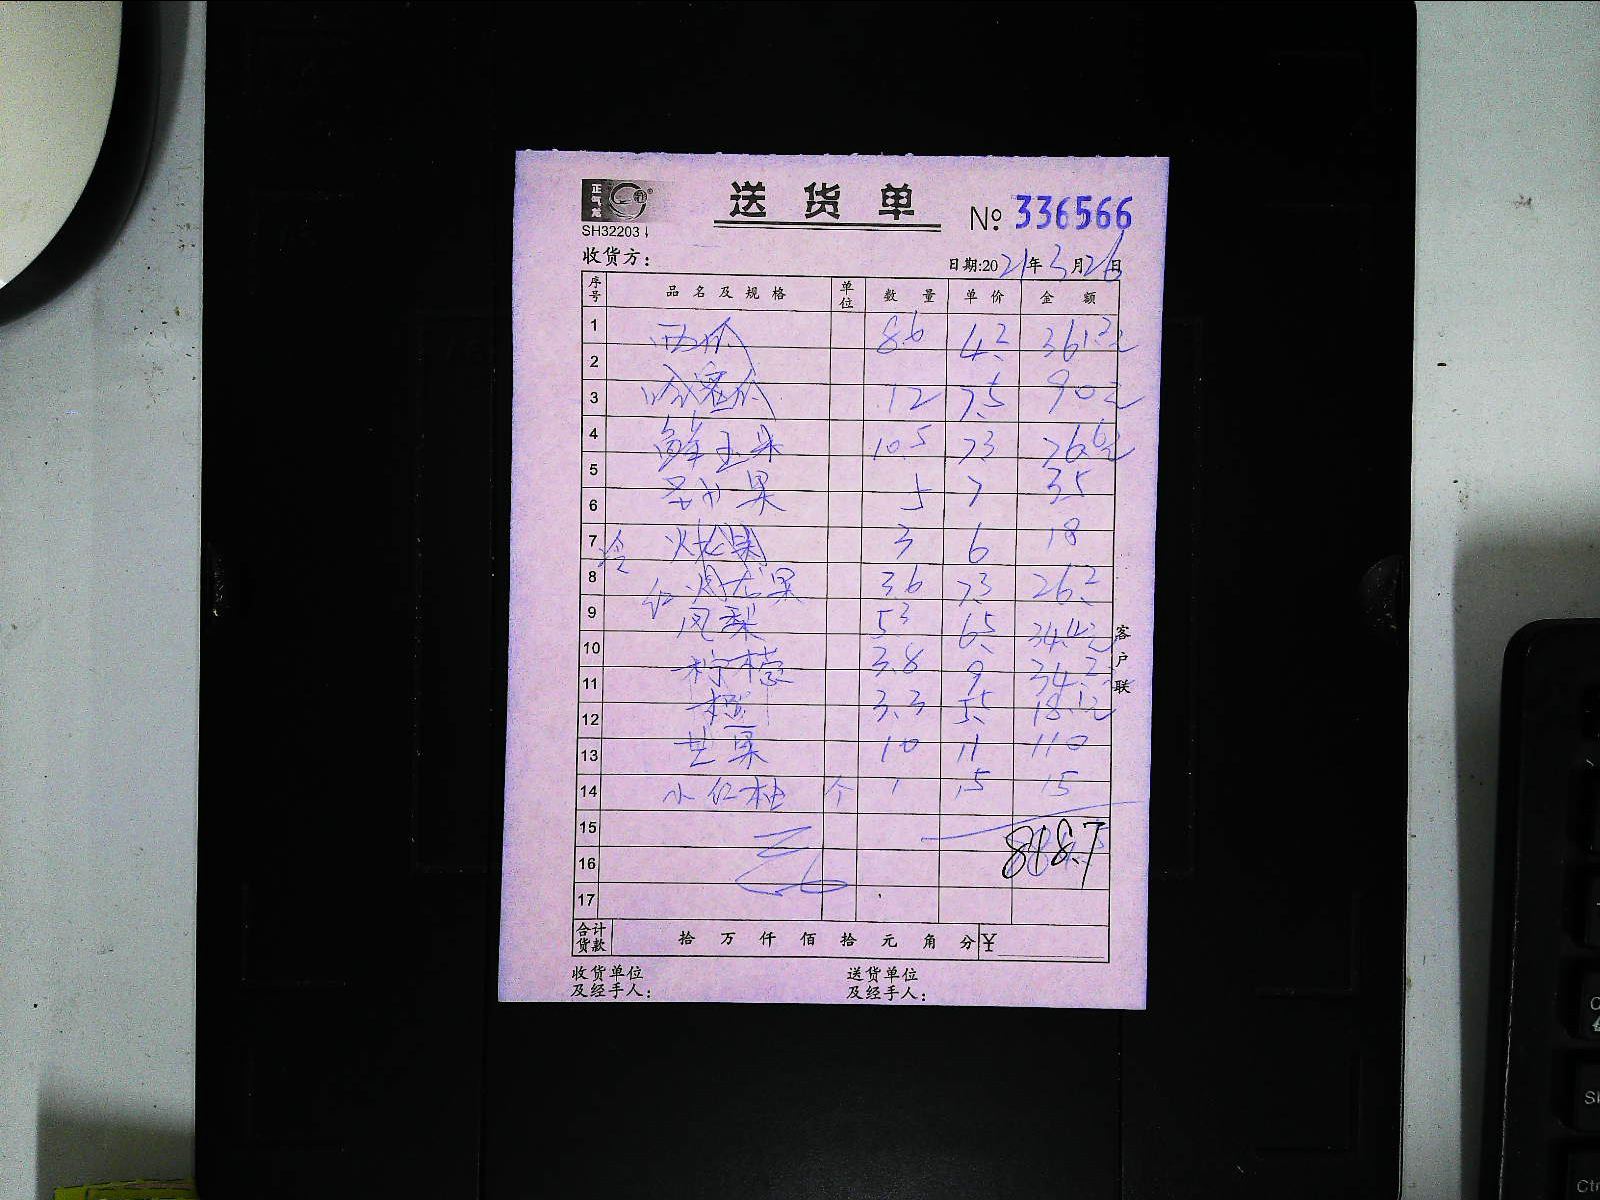 正气龙
送货单
№ 336566
SH32203
收货方：
日期:2021年3月26日
序号 品名及规格 单位 数量 单价 金额
1 西瓜 86 4.2 361.2元
2
3 哈密瓜 12 7.5 90元
4 鲜玉米 10.5 7.3 76.6元
5 圣女果 5 7 35
6
7 火龙果 3 6 18
8 红火龙果 3.6 7.3 26.2
9 凤梨 5.3 6.5 34.4元
10 柠檬 3.8 9 34.2
11 橙 3.3 5.5 18.1元
12
13 芒果 10 11 110
14 小红柚 个 1 15 15
15 818.7
16
17
合计货款 拾 万 仟 佰 拾 元 角 分 ¥
收货单位及经手人：
送货单位及经手人：
客户联